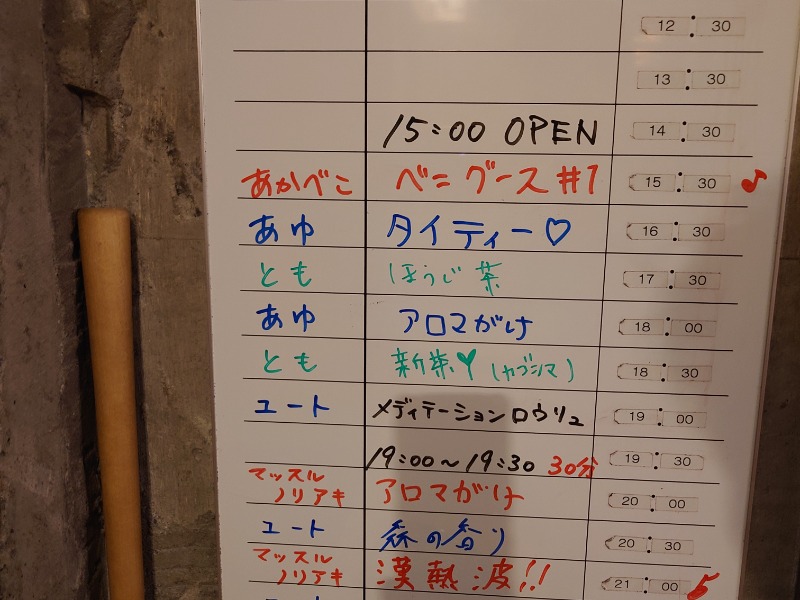 12:30
13:30
15:00 OPEN 14:30
あかべこ べニグース #1 15:30 ♪
あゆ タイティー♡ 16:30
とも ほうじ茶 17:30
あゆ アロマがけ 18:00
とも 新茶♥ (カゴシマ) 18:30
ユート メディテーションロウリュ 19:00
19:00～19:30 30分 19:30
マッスル
ノリアキ アロマがけ 20:00
ユート 森の香り 20:30
マッスル
ノリアキ 漢熱波!! 21:00